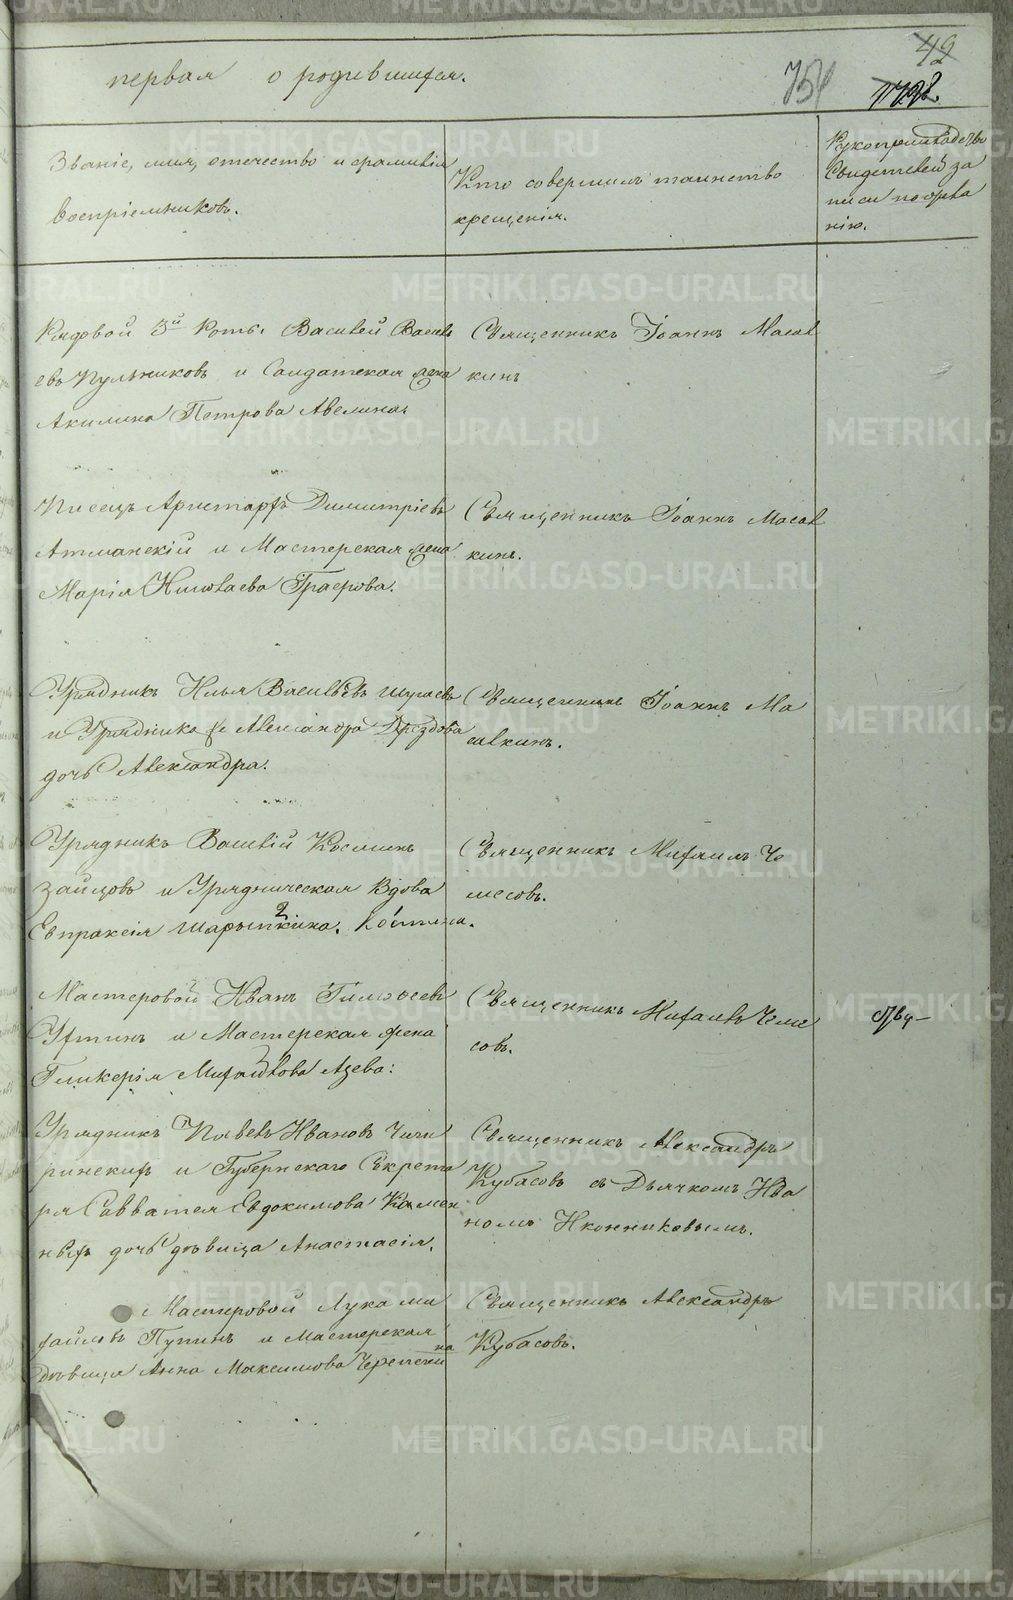 42
первая о родившихся.
751
Званіе, имя, отечество и фамилія
воспріемниковъ.
Кто совершилъ таинство
крещенія.
Рукоприкладство
свидетелей за
писи по жела
нію.
Рядовой 3й Роты Василей Василь
евъ Пульниковъ и Салдатская жена
Акилина Петрова Авелина.
Священникъ Іоаннъ Масал
кинъ
Писецъ Аристархъ Димитріевъ
Атманскій и Мастерская жена
Марія Николаева Граерова.
Священникъ Іоаннъ Масал
кинъ.
Урядникъ Илья Васильевъ
и Урядника Александра Дрездова
дочь Александра.
Священникъ Іоаннъ Ма
салкинъ.
Урядникъ Василій Косминъ
Зайцовъ и Урядническая вдова
Евпраксія Шарыпкина.
Священникъ Михаилъ Че
месовъ.
Мастеровой Иванъ Тимофеевъ
Ухтинъ и Мастерская жена
Гликерія Михайлова Азева:
Священникъ Михаилъ Чеме
совъ.
Урядникъ Павелъ Ивановъ Чичи
ринскихъ и Губернскаго Секрета
ря Савватея Евдокимова Камен
ныхъ дочь девица Анастасія.
Священникъ Александръ
Кубасовъ съ Дьячкомъ Ива
номъ Иконниковымъ.
Мастеровой Лука Ми
хайловъ Пупинъ и Мастерская
девица Анна Максимова Черепани
на
Священникъ Александръ
Кубасовъ.
METRIKI.GASO-URAL.RU